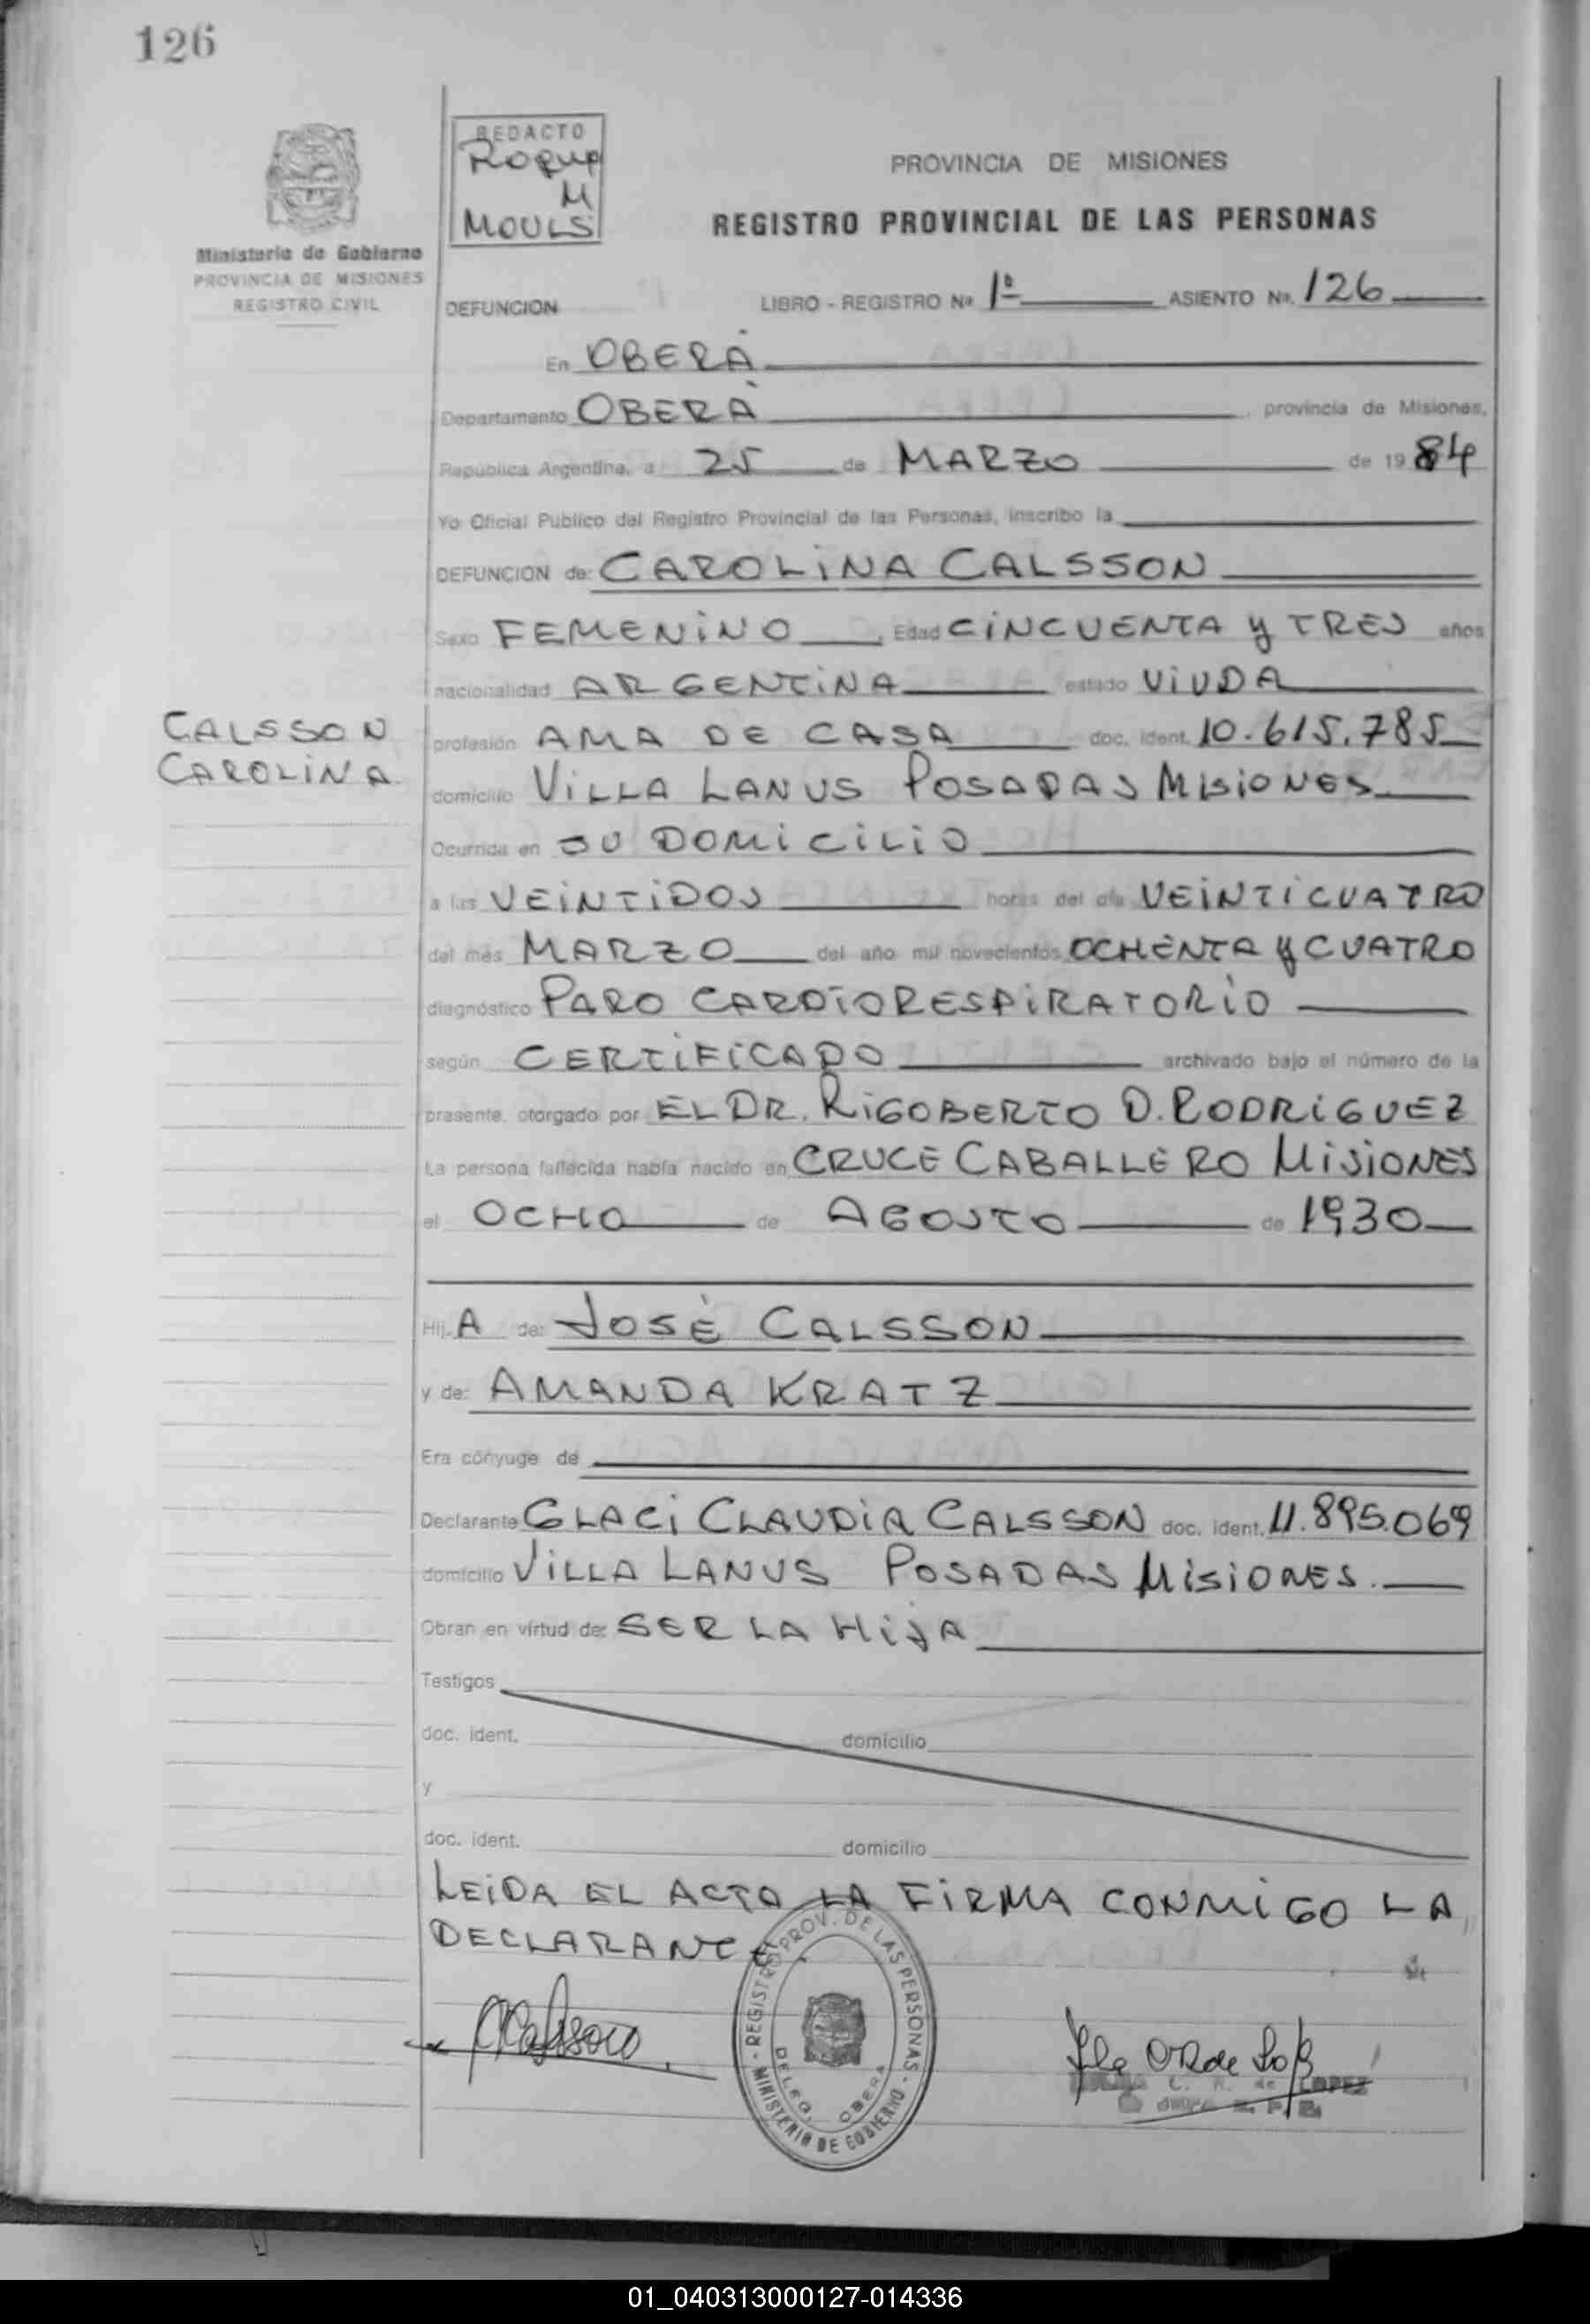 126
REDACTO
ROQUE
M
MOULS
Ministerio de Gobierno
PROVINCIA DE MISIONES
REGISTRO CIVIL
PROVINCIA DE MISIONES
REGISTRO PROVINCIAL DE LAS PERSONAS
DEFUNCION LIBRO - REGISTRO Nº 1º ASIENTO Nº. 126
En OBERÁ
Departamento OBERÁ, provincia de Misiones,
República Argentina, a 25 de MARZO de 1984
Yo Oficial Público del Registro Provincial de las Personas, inscribo la
DEFUNCION de: CAROLINA CALSSON
Sexo FEMENINO, Edad CINCUENTA y TRES años
nacionalidad ARGENTINA estado VIUDA
CALSSON
CAROLINA
profesión AMA DE CASA doc. ident. 10.615.785
domicilio VILLA LANUS POSADAS MISIONES
Ocurrida en SU DOMICILIO
a las VEINTIDOS horas del día VEINTICUATRO
del mes MARZO del año mil novecientos OCHENTA y CUATRO
diagnóstico PARO CARDIORESPIRATORIO
según CERTIFICADO archivado bajo el número de la
presente, otorgado por EL DR. RIGOBERTO D. RODRIGUEZ
La persona fallecida había nacido en CRUCE CABALLERO MISIONES
el OCHO de AGOSTO de 1930
Hij A de: JOSÉ CALSSON
y de: AMANDA KRATZ
Era cónyuge de
Declarante GLACI CLAUDIA CALSSON doc. ident. 11.895.069
domicilio VILLA LANUS POSADAS MISIONES.
Obran en virtud de: SER LA HIJA
Testigos
doc. ident. domicilio
y
doc. ident. domicilio
LEIDA EL ACTA LA FIRMA CONMIGO LA
DECLARANTE
REGISTRO PROV. DE LAS PERSONAS
DELEG. OBERA
MINISTERIO DE GOBIERNO
de LOPEZ
01_040313000127-014336